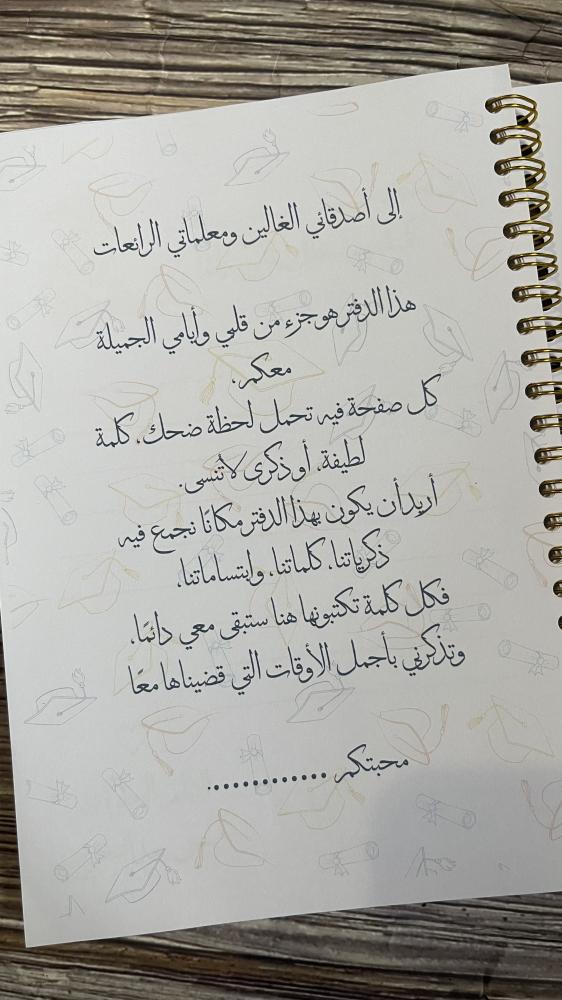 إلى أصدقائي الغالين ومعلماتي الرائعات
هذا الدفتر هو جزء من قلبي وأيامي الجميلة
معكم.
كل صفحة فيه تحمل لحظة ضحك، كلمة
لطيفة، أو ذكرى لا تُنسى.
أريد أن يكون بهذا الدفتر مكانًا نجمع فيه
ذكرياتنا، كلماتنا، وابتساماتنا،
فكل كلمة تكتبونها هنا ستبقى معي دائمًا،
وتذكرني بأجمل الأوقات التي قضيناها معًا
محبتكم .............